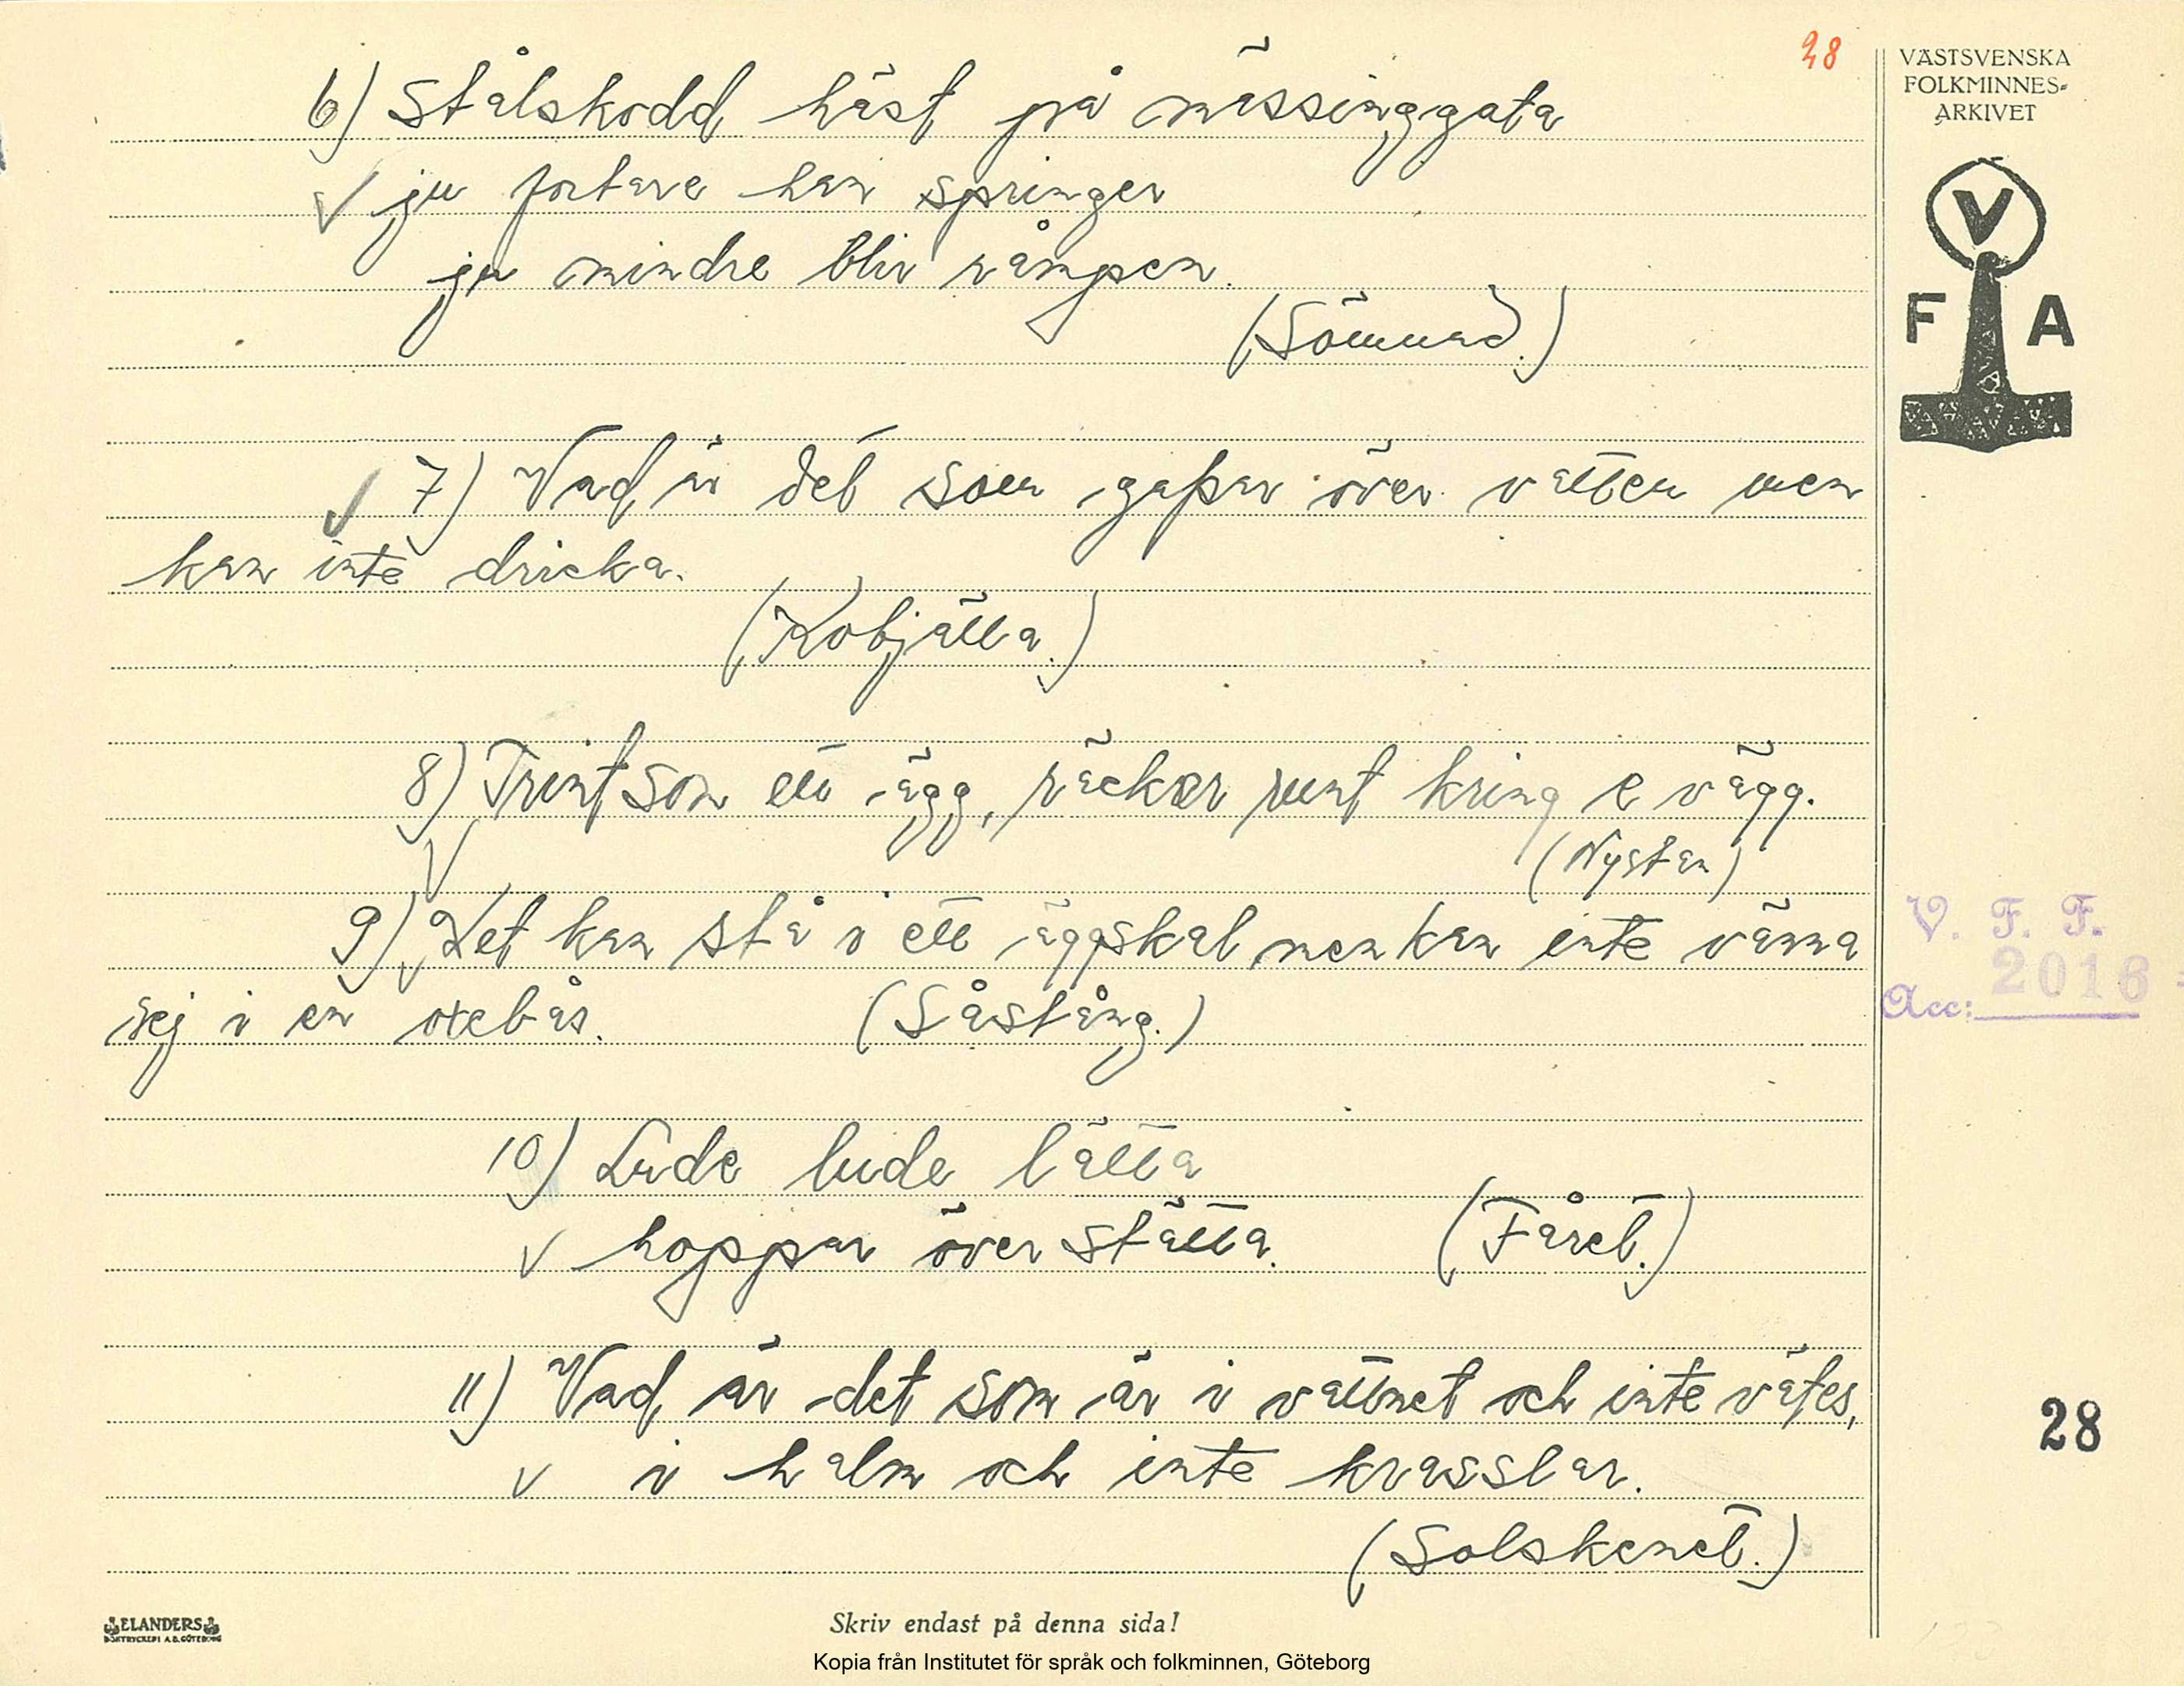 28
VÄSTSVENSKA
FOLKMINNES-
ARKIVET
V
F A
6) Stålskodd häst på mässinggata
ju fortare han springer
ju mindre bliv rumpen.
(Sömnad.)
7) Vad är det som gapar över vatten men
kan inte dricka.
(Kobjälla.)
8) Trint som ett ägg, räcker runt kring e vägg.
(Nystan)
9) Det kan stå i ett äggskal men kan inte vänna
sej i en oxebås. (Såstång.)
10) Lude lude lätta
hoppar över stätta. (Fåret.)
11) Vad är det som är i vattnet och inte vätes,
i halm och inte krasslar.
(Solskenet.)
V. F. F.
Acc: 2016
28
ELANDERS
BOKTRYCKERI A.B. GÖTEBORG
Skriv endast på denna sida!
Kopia från Institutet för språk och folkminnen, Göteborg